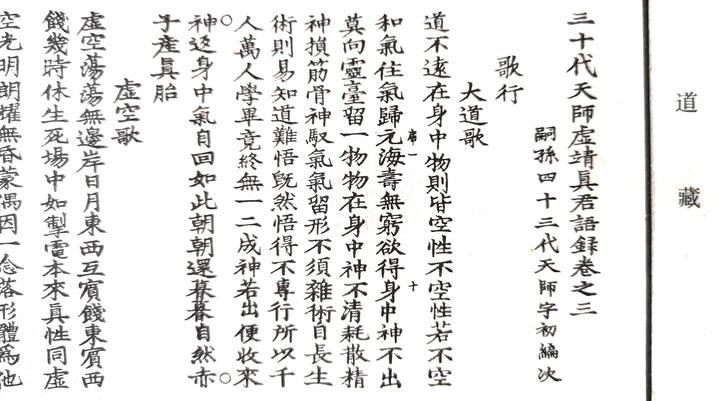 道藏
三十代天師虛靖眞君語錄卷之三
嗣孫四十三代天師宇初編次
歌行
大道歌
道不遠在身中物則皆空性不空性若不空
和氣住氣歸元海壽無窮欲得身中神不出
席一
十
莫向靈臺留一物物在身中神不清耗散精
神損筋骨神馭氣氣留形不須雜術自長生
術則易知道難悟旣然悟得不專行所以千
人萬人學畢竟終無一二成神若出便收來
神返身中氣自回如此朝朝還暮暮自然赤
子產眞胎
虛空歌
虛空蕩蕩無邊岸日月東西互賓餞東賓西
餞幾時休生死場中如掣電本來眞性同虛
空光明朗耀無昏蒙偶因一念落形體爲他